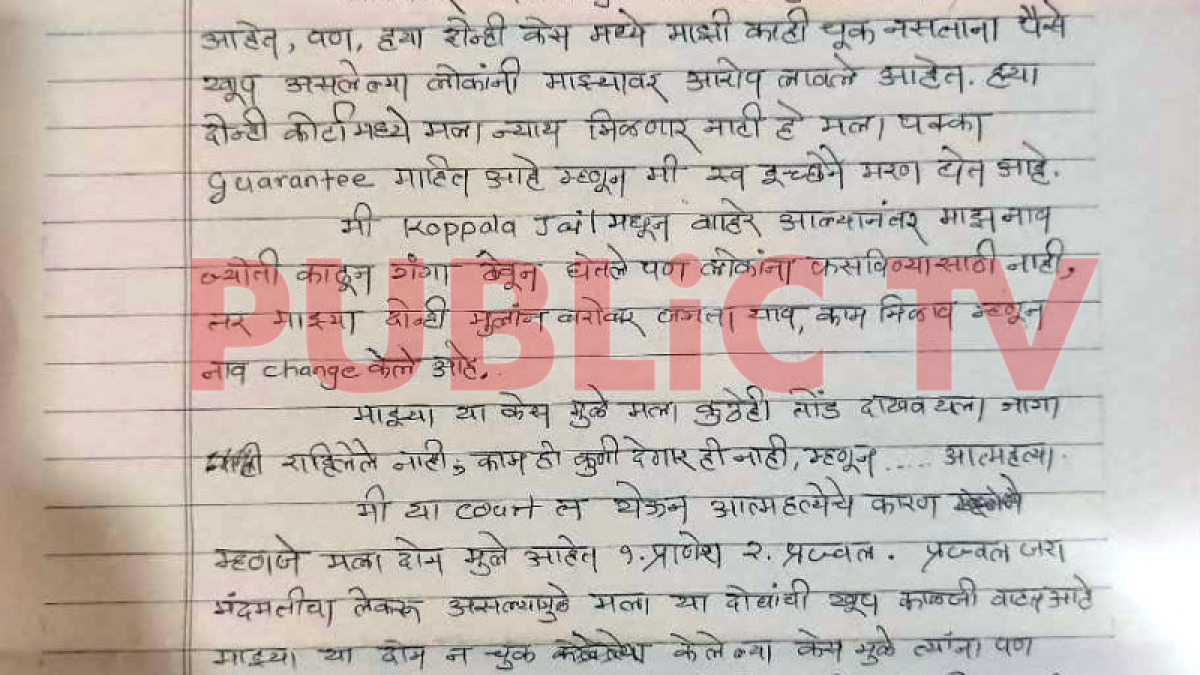 आहेत, पण, हया दोन्ही केस मध्ये माझी काही चूक नसताना पैसे
खूप असलेल्या लोकांनी माझ्यावर आरोप लावले आहेत. हया
दोन्ही कोर्टामध्ये मला न्याय मिळणार नाही हे मला पक्का
guarantee माहित आहे म्हणून मी स्व इच्छेने मरण घेत आहे.
मी Koppala Jail मधून बाहेर आल्यानंतर माझ नाव
ज्योती काढून गंगा ठेवून घेतले पण लोकांना फसविण्यासाठी नाही,
PUBLiC TV
तर माझ्या दोन्ही मुलांन बरोबर जगता याव, काम मिळाव म्हणून
नाव change केले आहे..
माझ्या या केस मुळे मला कुठेही तोंड दाखवयला जागा
राहिलेले नाही, काम ही कुणी देणार ही नाही, म्हणून ..... आत्महत्या.
मी या court त येऊन आत्महत्येचे कारण
म्हणजे मला दोन मुले आहेत १. प्राणेश २. प्रज्वल. प्रज्वल जरा
मंदमतीचा लेकरू असल्यामुळे मला या दोघांची खूप काळजी वाटत आहे
माझ्या या दोन न चुक केलेल्या केस मुळे त्यांना पण